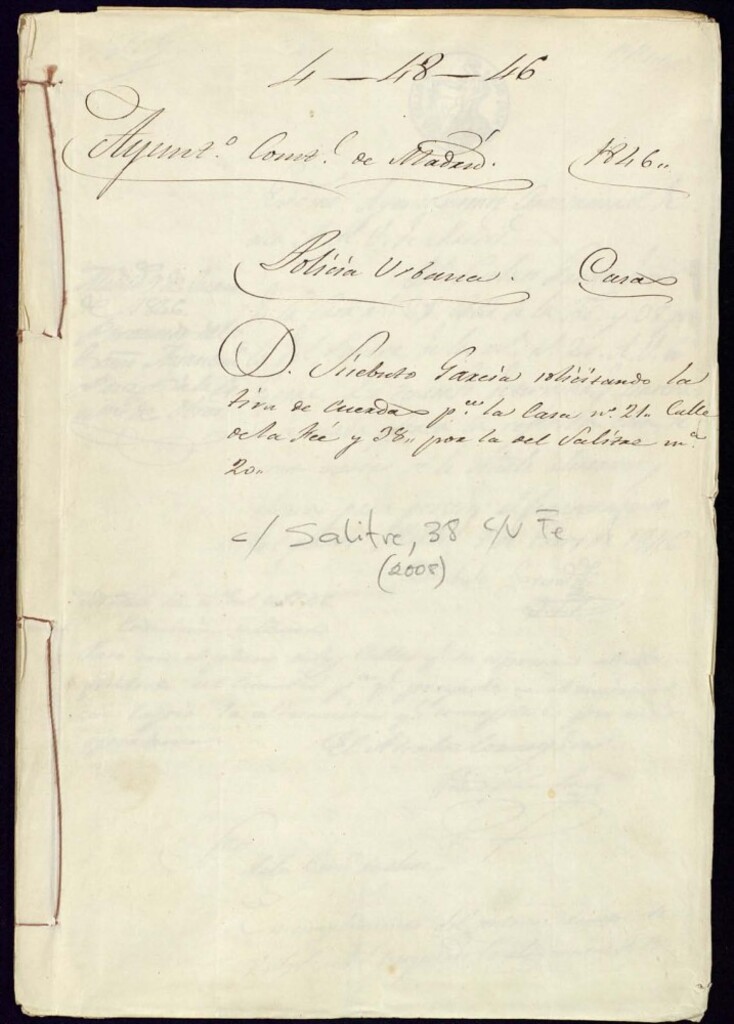 4 — 48 — 46
Ayunt.º Const.l de Madrid. 1846„
Policia Urbana. Casas
D. García solicitando la
tira de cuerdas p.ª la Casa nº. 21„ Calle
de la Fé y 38„ por la del Salitre m.ª
20„
c/ Salitre, 38 c/v Fe
(2008)